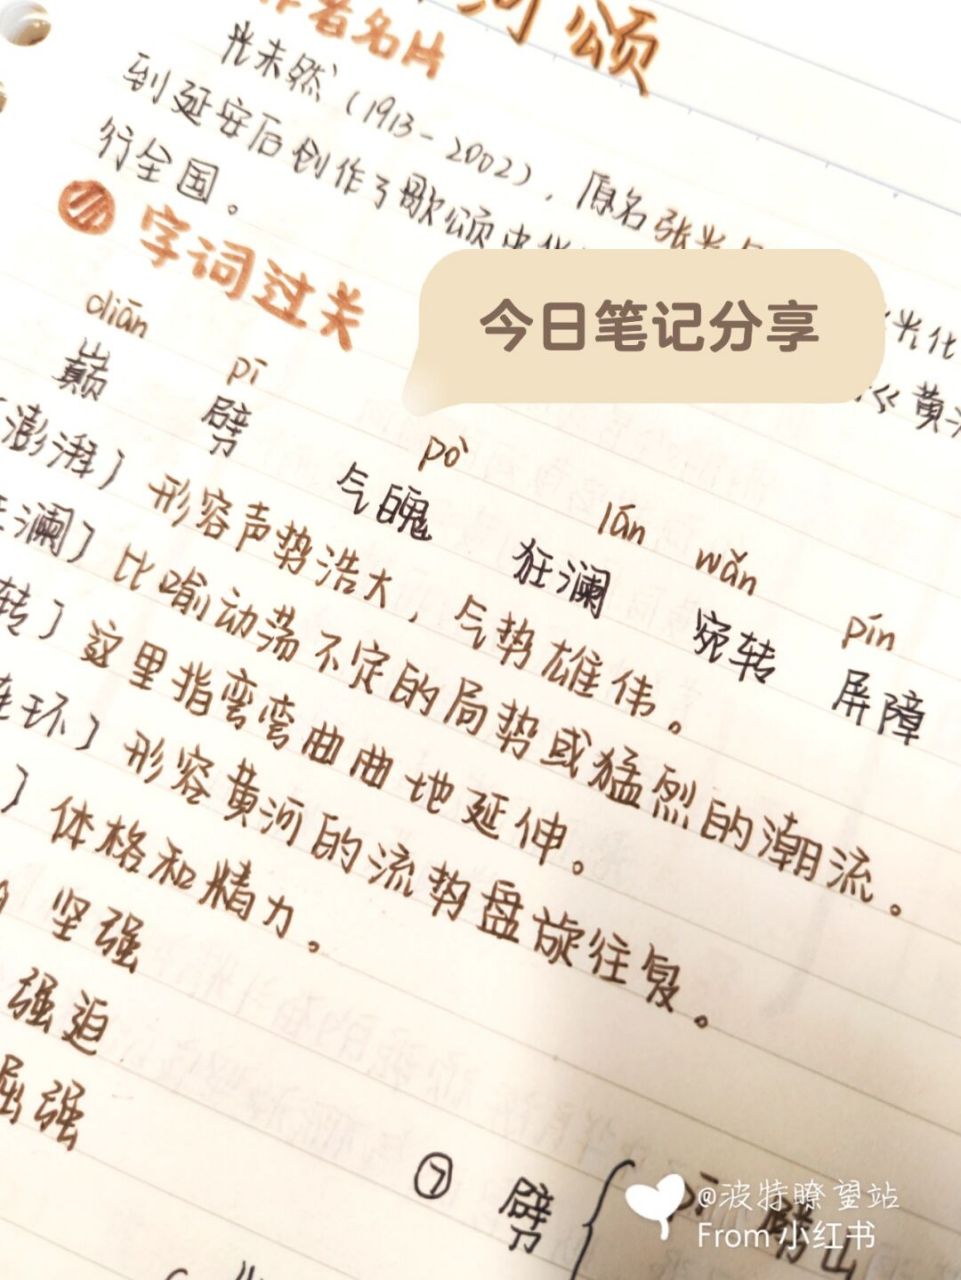 河颂
作者名片
光未然（1913-2002），原名张光年
光化
到延安后创作了歌颂中华
《黄河
行全国。
字词过关
diān pī pò lán wǎn pín
巅 劈 气魄 狂澜 宛转 屏障
澎湃］形容声势浩大，气势雄伟。
狂澜］比喻动荡不定的局势或猛烈的潮流。
转］这里指弯弯曲曲地延伸。
连环］形容黄河的流势盘旋往复。
］体格和精力。
坚强
强迫
屈强
⑦ 劈｛pī 劈山
今日笔记分享
@波特瞭望站
From 小红书